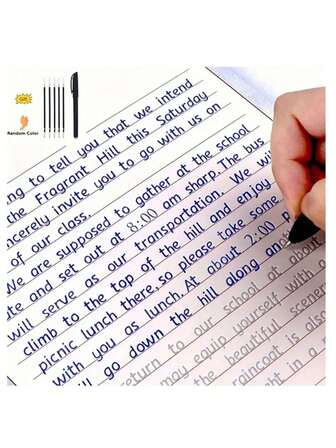 Random Color
ng to tell you that we intend
the Fragrant Hill this Saturday
ncerely invite you to go with us on
of our class.
We are supposed to gather at the school
ate and set out at 8:00 am sharp. The bus
will serve as our transportation. We wi
climb to the top of the hill and enjoy
picnic lunch there, so please take some
with you as lunch. At about 2:00 p
will go down the hill along ano
return to our school at about
may equip yourself with
the beautiful scener
raincoat is also
ht in a